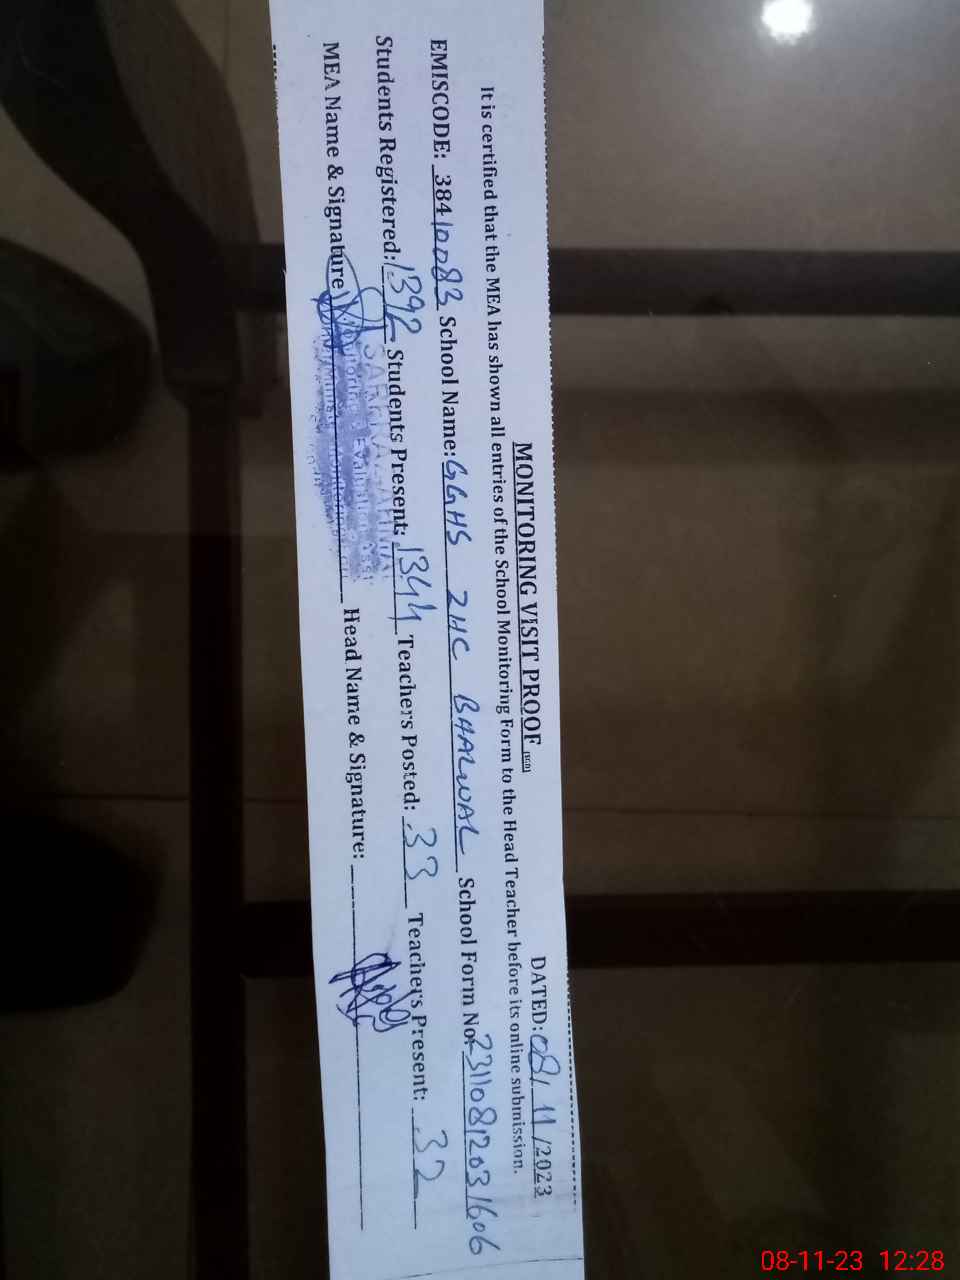 MONITORING VISIT PROOF (SGD)
DATED: 08/11/2023
It is certified that the MEA has shown all entries of the School Monitoring Form to the Head Teacher before its online submission.
EMISCODE: 38410083 School Name: GGHS ZHC BHALWAL School Form No: 23110812031606
Students Registered: 1392 Students Present: 1344 Teachers Posted: 33 Teachers Present: 32
MEA Name & Signature Head Name & Signature:
08-11-23 12:28